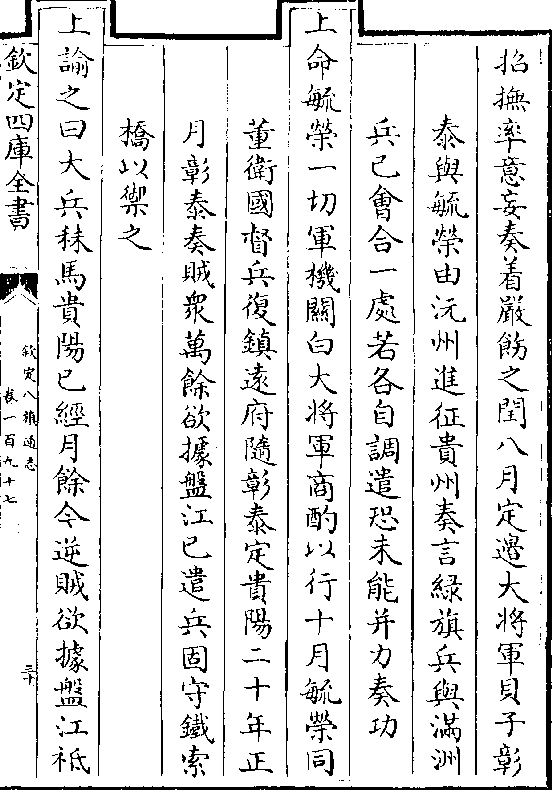 招撫率意妄奏着嚴飭之閏八月定邊大將軍貝子彰
泰與毓榮由沅州進征貴州奏言綠旗兵與滿洲
兵已會合一處若各自調遣恐未能并力奏功
上命毓榮一切軍機關白大將軍商酌以行十月毓榮同
董衛國督兵復鎮遠府隨彰泰定貴陽二十年正
月彰泰奏賊眾萬餘欲據盤江已遣兵固守鐵索
橋以禦之
上諭之曰大兵秣馬貴陽已經月餘今逆賊欲據盤江祗
欽定四庫全書
欽定八旗通志
卷一百九十七
三十